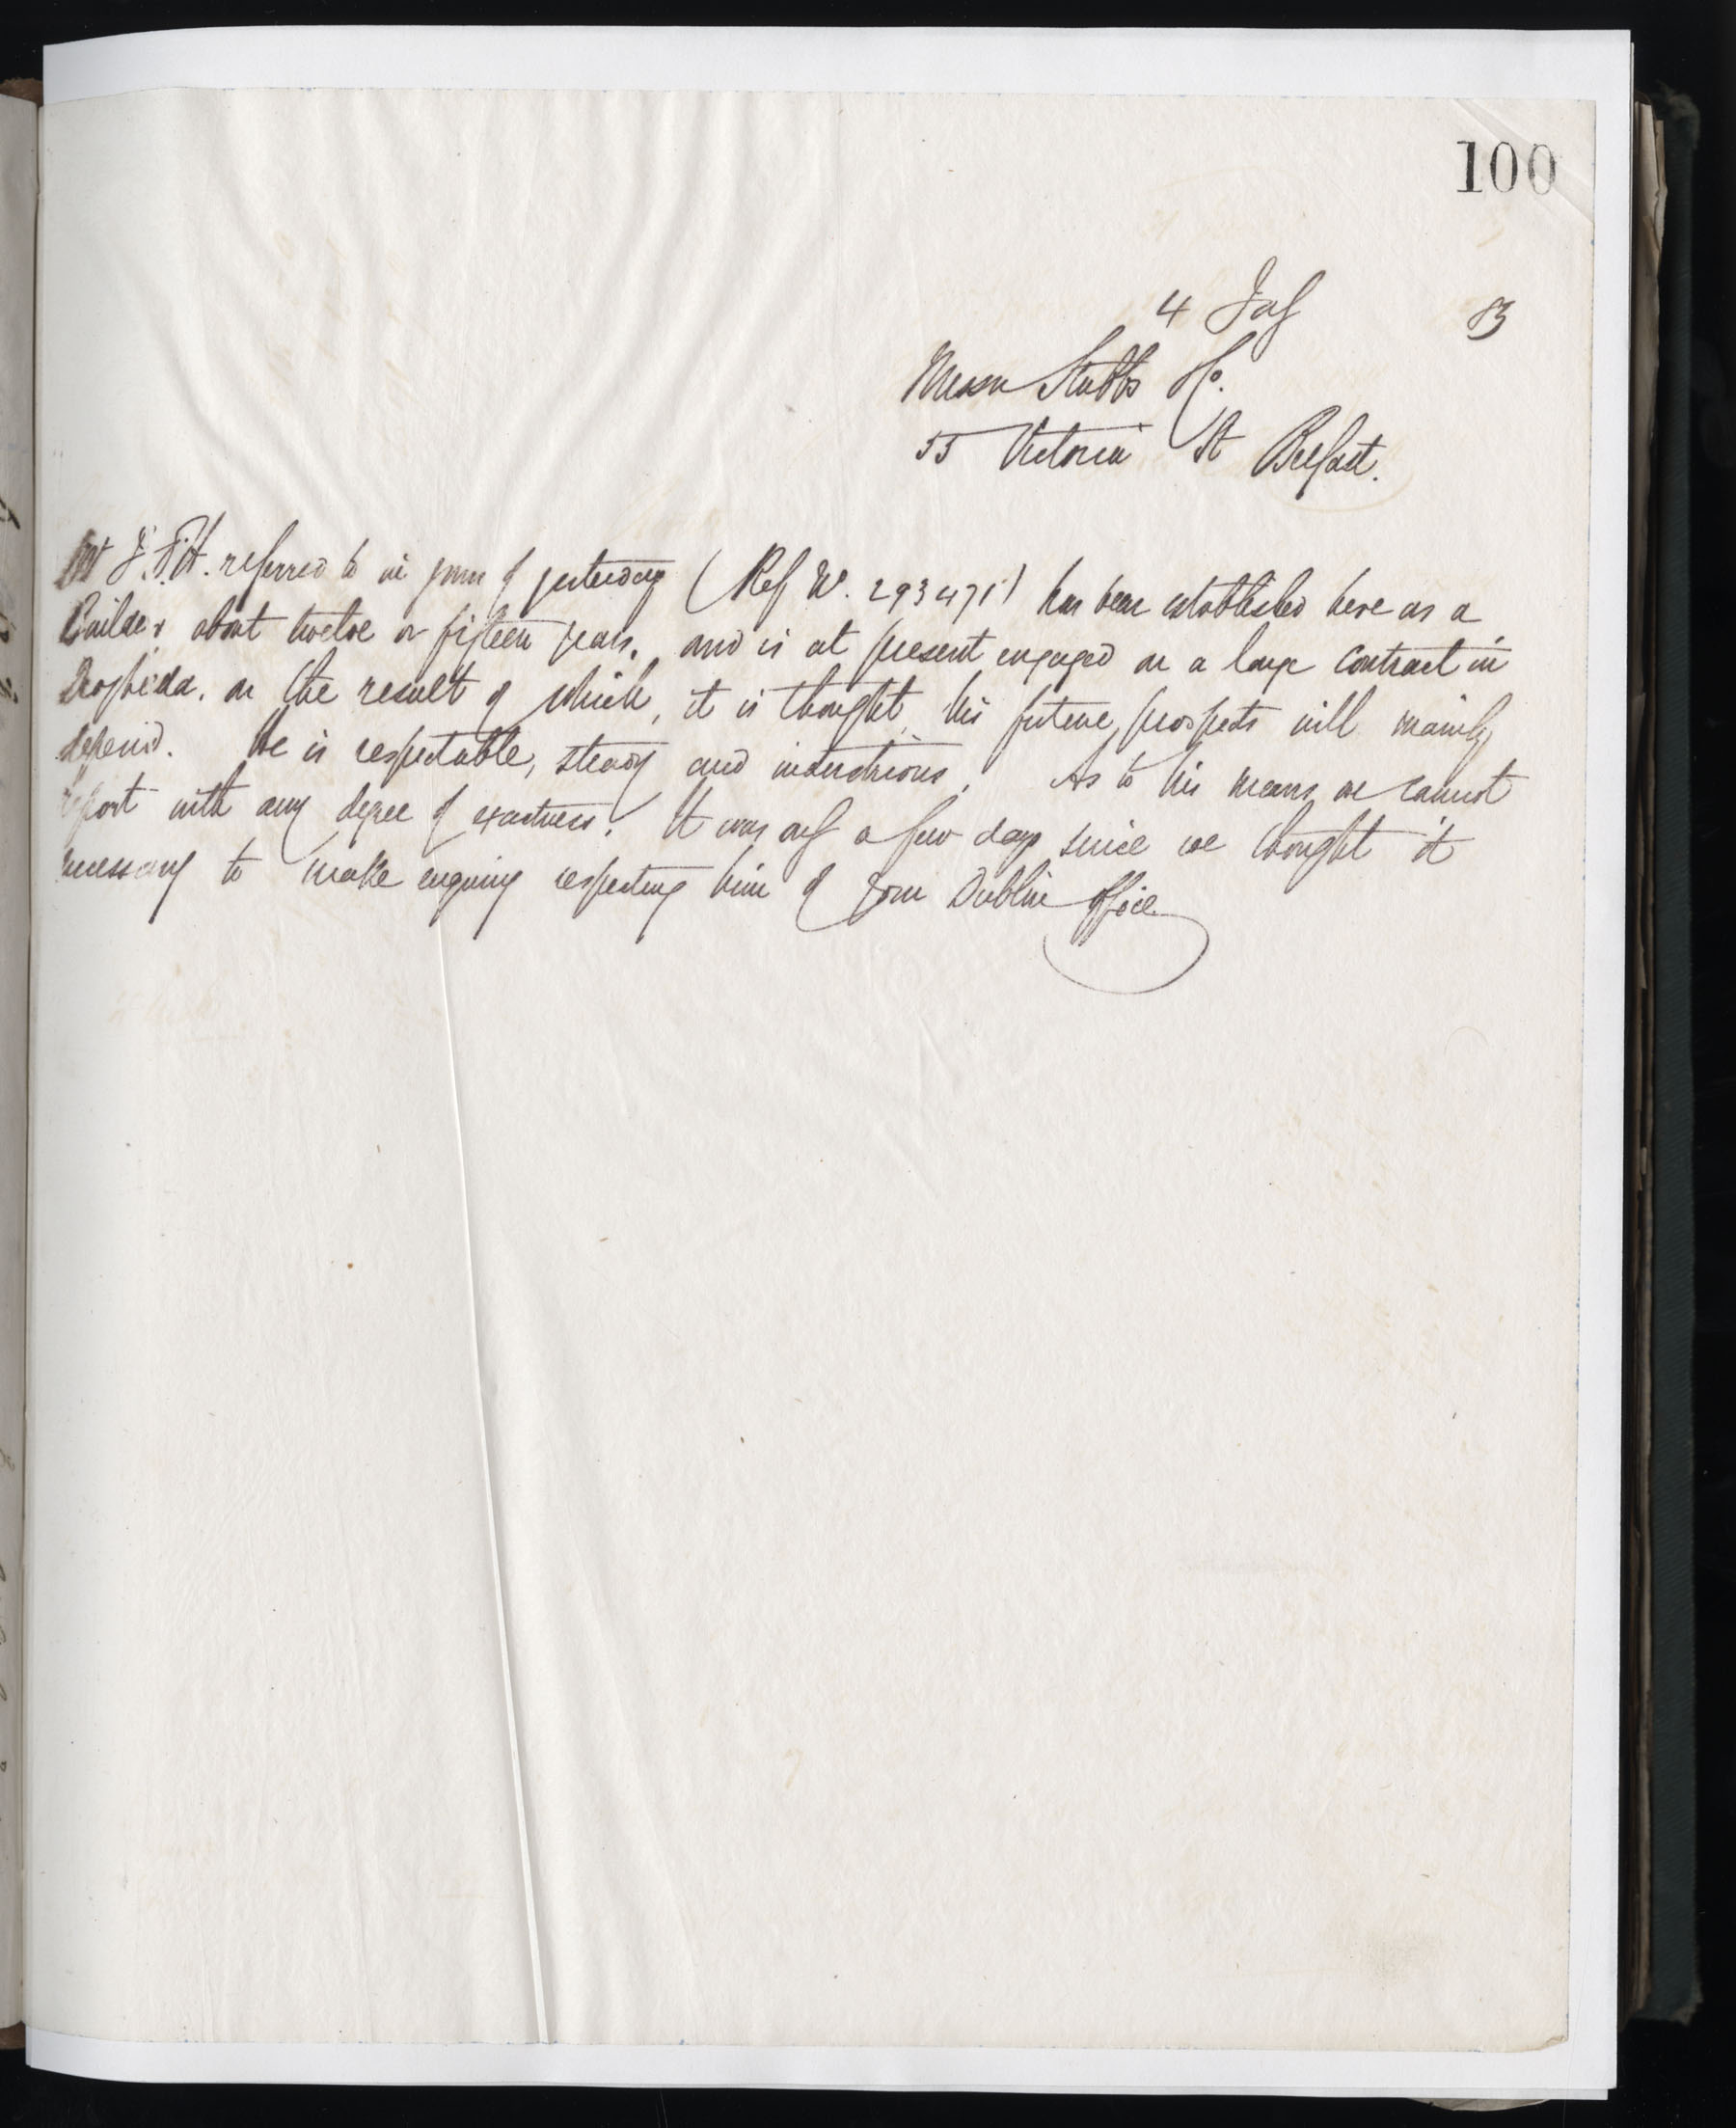 100
4 July 83
Messrs Stubbs & Co.
55 Victoria St Belfast.
Mr J. F. H. referred to in yours of yesterday (Ref W. 293471) has been established here as a
Builder about twelve or fifteen years, and is at present engaged on a large contract in
Drogheda, on the result of which, it is thought, his future prospects will mainly
depend. He is respectable, steady and industrious. As to his means we cannot
report with any degree of exactness. It was only a few days since we thought it
necessary to make enquiry respecting him of your Dublin office